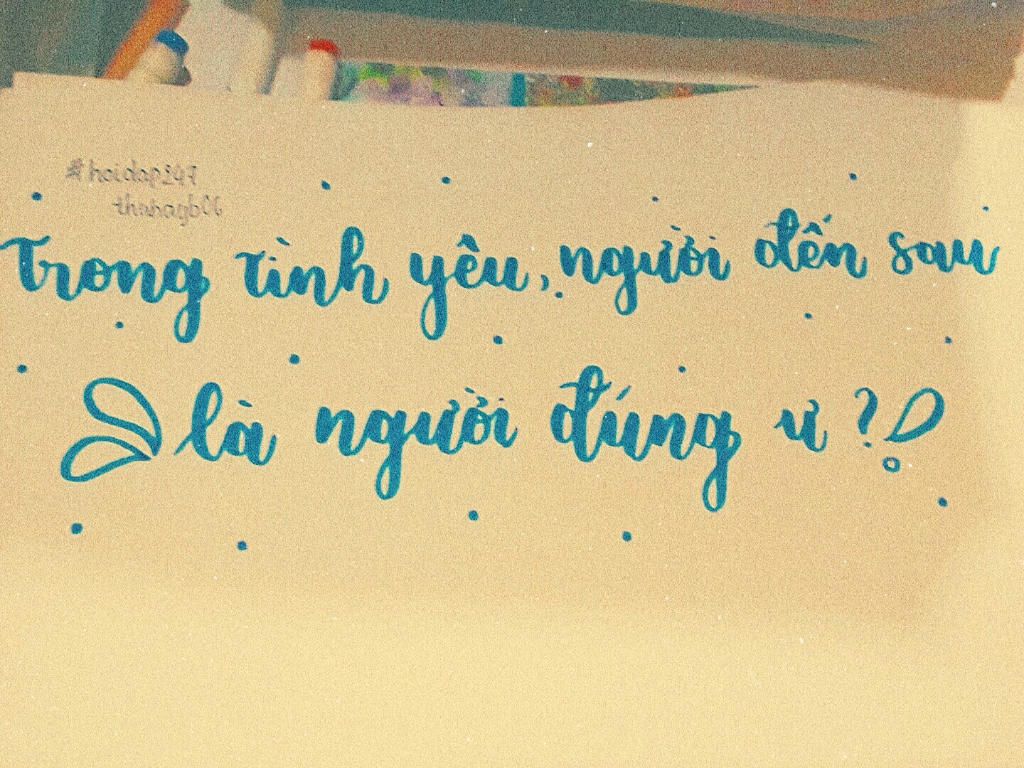 #hoidap247
thuhagb06
Trong tình yêu, người đến sau
là người đúng ư?